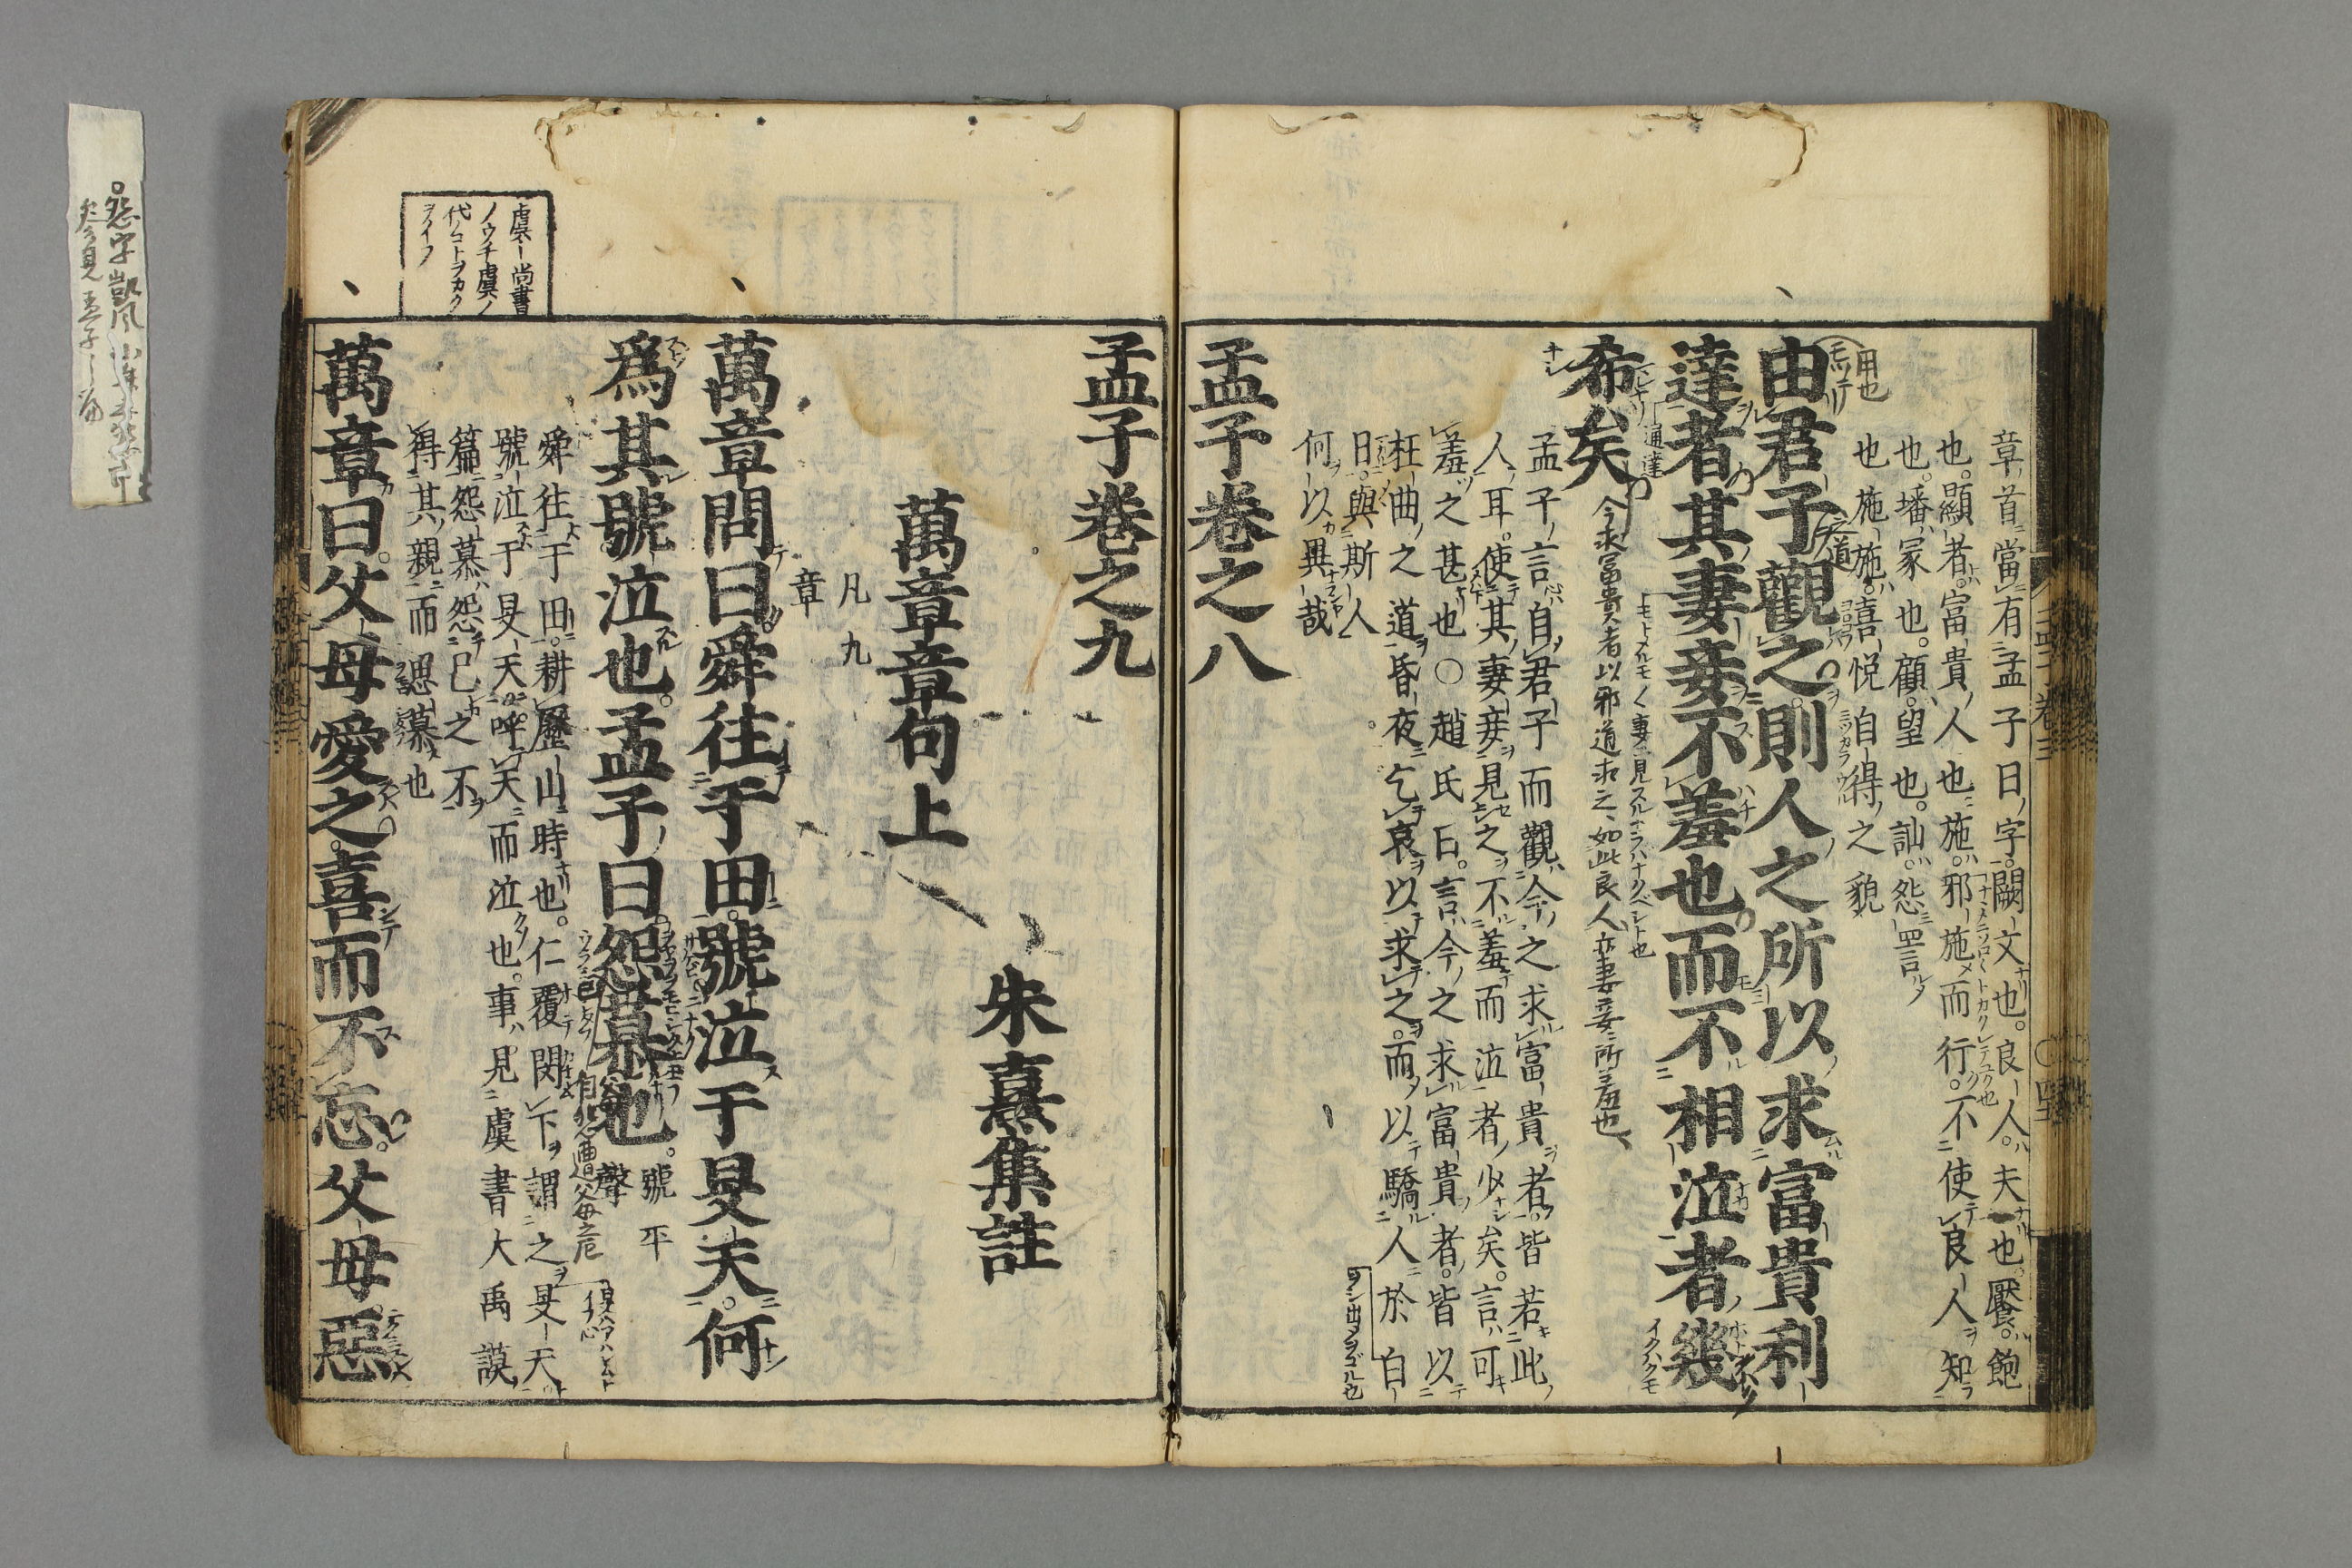 章首當有孟子曰字。闕文也。良人。夫也。饜。飽
也。顯者。富貴人也。施。邪施而行。不使良人知
也。墦。冢也。顧。望也。訕。怨詈
也施施。喜悦自得之貌
用也
由君子觀之。則人之所以求富貴利
達者。其妻妾不羞也。而不相泣者幾
希矣
通達
今求富貴者以邪道求之、如此良人亦妻妾ニ所羞也
孟子言自君子而觀今之求富貴者。皆若此
人耳。使其妻妾見之。不羞而泣者少矣。言可
羞之甚也○趙氏曰。言今之求富貴者。皆以
枉曲之道昏夜乞哀以求之。而以驕人於白
日。與斯人
何以異哉
孟子巻之八
孟子巻之九
朱熹集註
萬章章句上
凡九
章
萬章問曰。舜往于田。號泣于旻天。何
爲其號泣也。孟子曰。怨慕也。
號平
聲
自怨遭父母之
舜往于田。耕歷山時也。仁覆閔下。謂之旻天
號泣于旻天。呼天而泣也。事見虞書大禹謨
篇怨慕。怨己之不
得其親而思慕也
萬章曰。父母愛之。喜而不忘。父母惡
虞ー尚書
ノウチ虞ノ
代ノコトヲカク
ヲイフ
怨字凱風
参見孟子